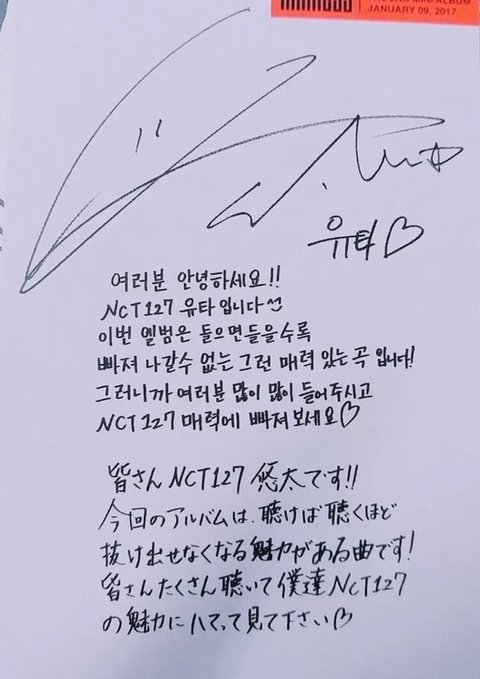 THE 2ND MINI ALBUM
JANUARY 09, 2017
유타♡
여러분 안녕하세요!!
NCT127 유타입니다
이번 엘범은 들으면들을수록
빠져 나갈수 없는 그런 매력 있는 곡 입니다!
그러니까 여러분 많이 많이 들어주시고
NCT 127 매력에 빠져보세요♡
皆さんNCT127 悠太です!!
今回のアルバムは、聴けば聴くほど
抜け出せなくなる魅力がある曲です!
皆さんたくさん聴いて僕達NCT127
の魅力にハマって見て下さい♡